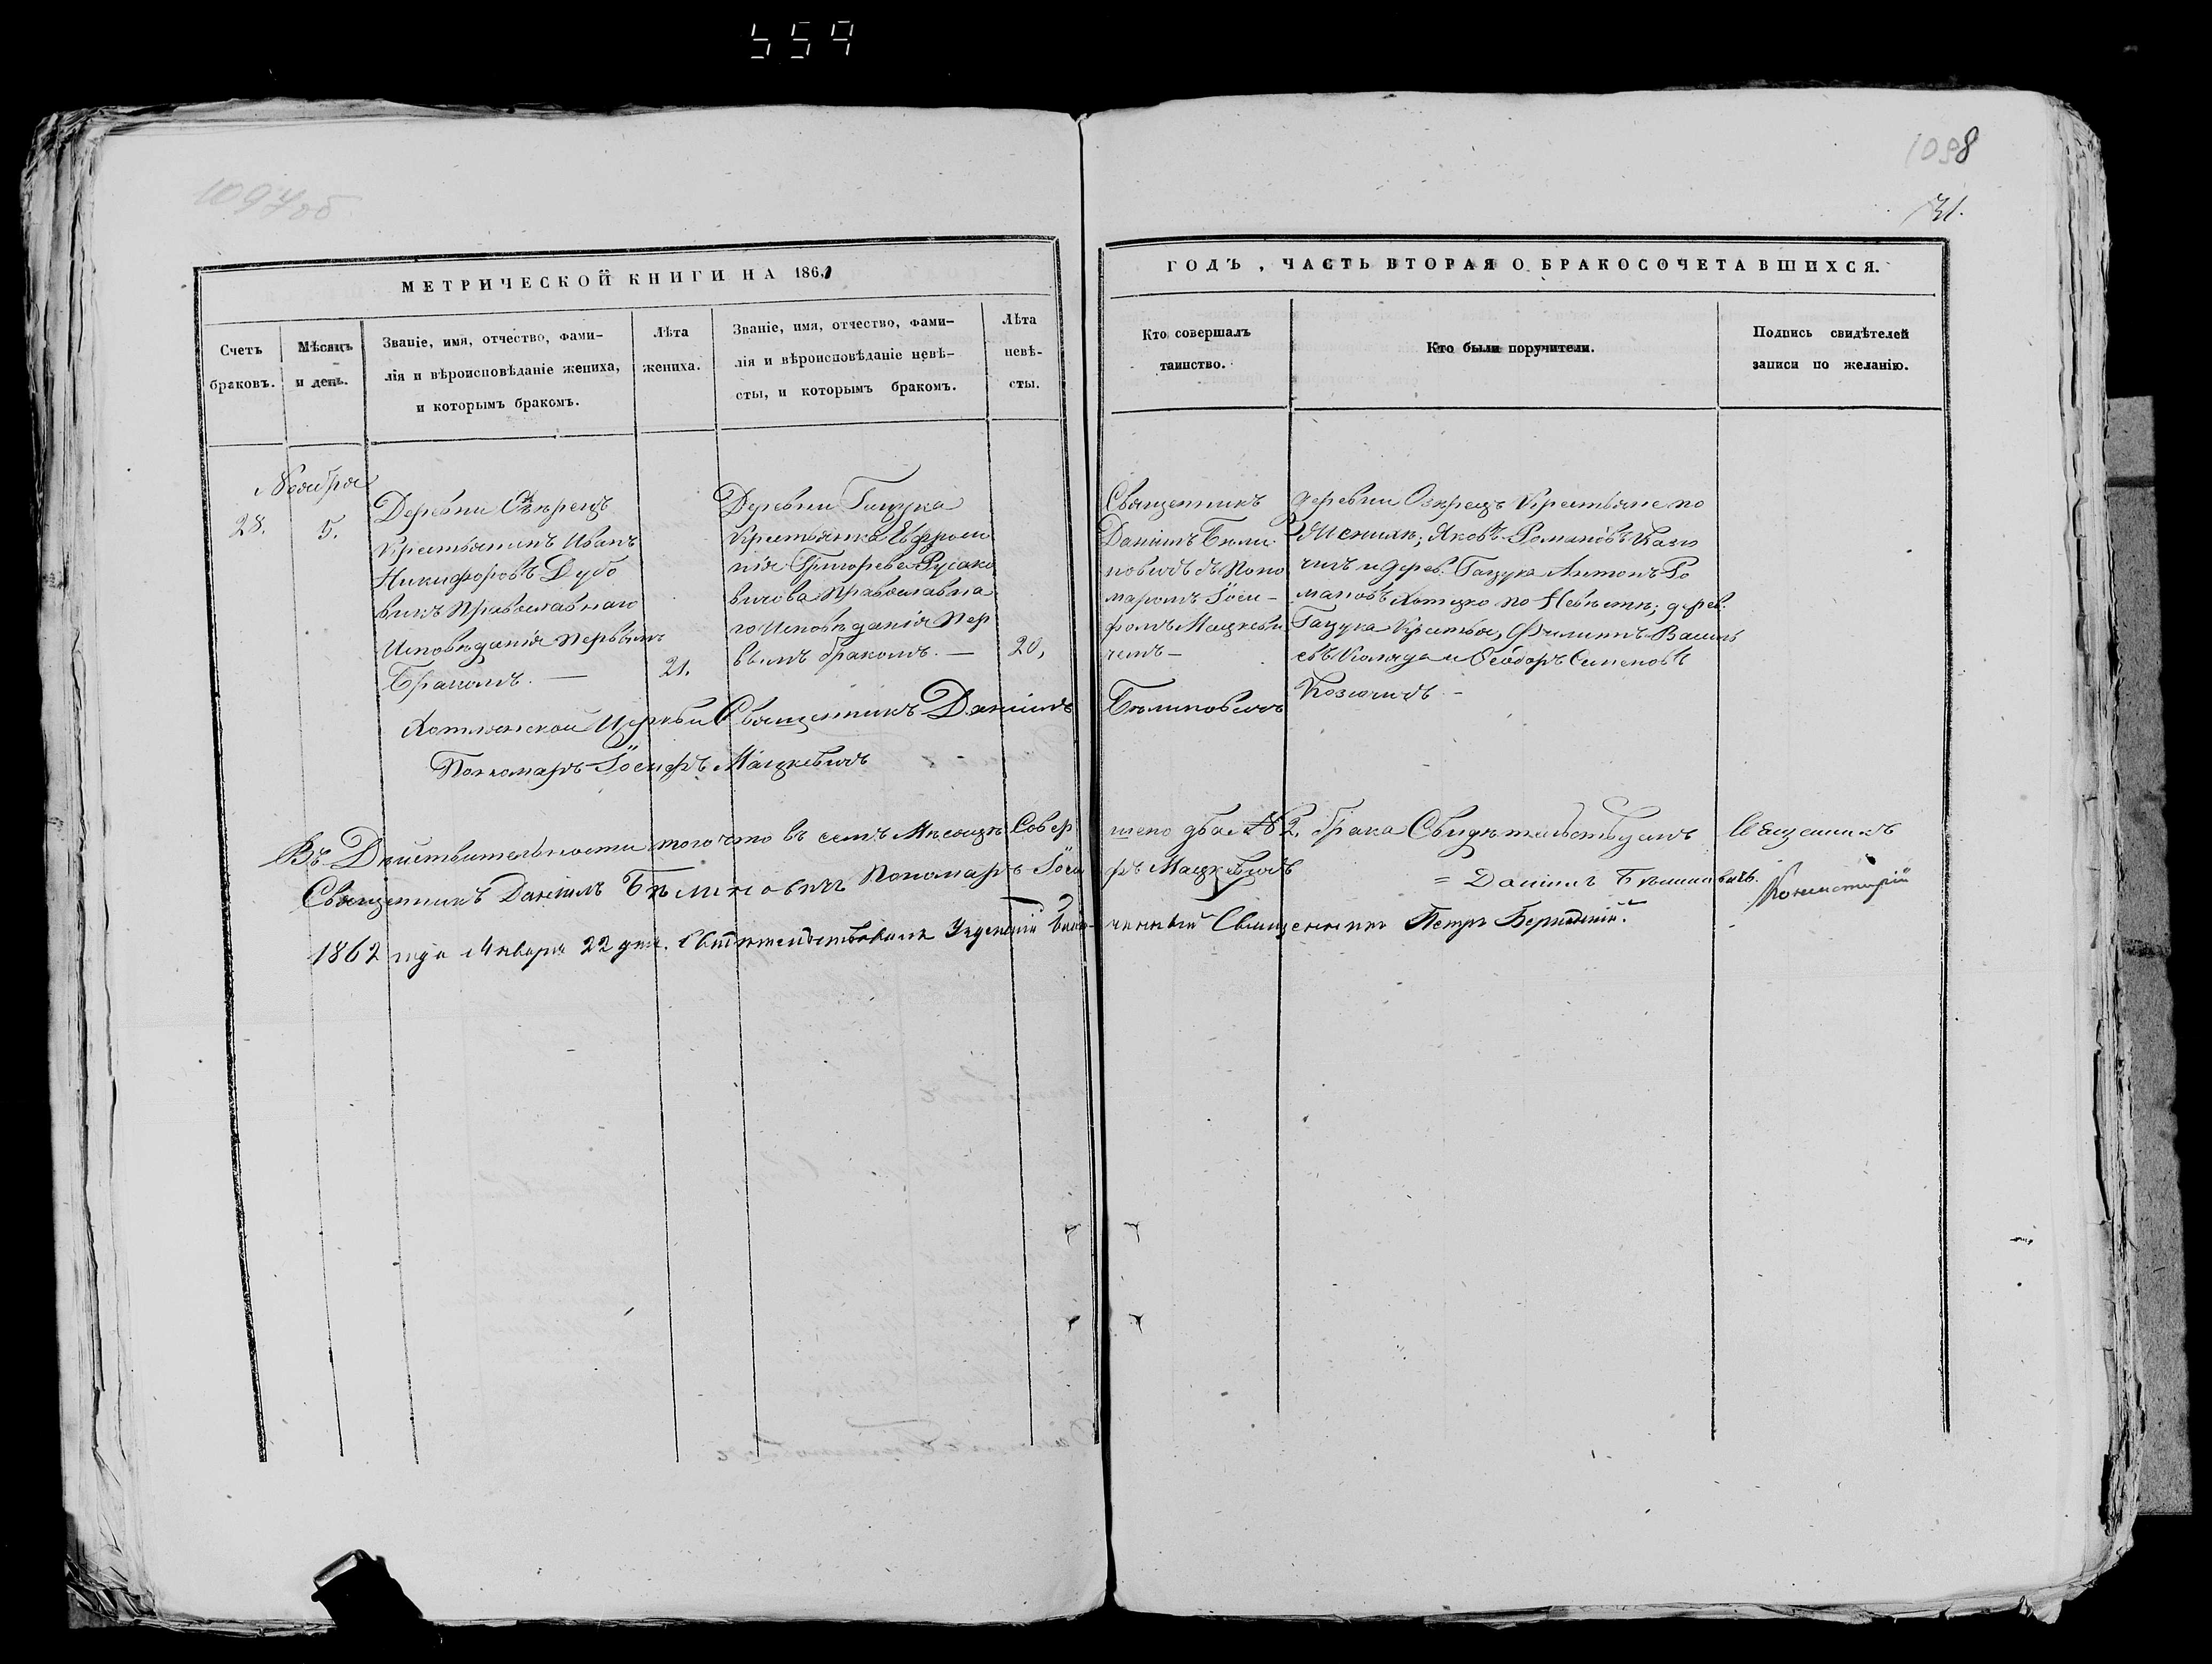 559
1097об
1098
31.
МЕТРИЧЕСКОЙ КНИГИ НА 1861
ГОДЪ, ЧАСТЬ ВТОРАЯ О БРАКОСОЧЕТАВШИХСЯ.
Счетъ браковъ.
Мѣсяцъ и день.
Званіе, имя, отчество, фами-
лія и вѣроисповѣданіе жениха,
и которымъ бракомъ.
Лѣта
жениха.
Званіе, имя, отчество, фами-
лія и вѣроисповѣданіе невѣ-
сты, и которымъ бракомъ.
Лѣта
невѣ-
сты.
Кто совершалъ
таинство.
Кто были поручители.
Подпись свидѣтелей
записи по желанію.
Ноября
28.
5.
Деревни Озерецъ
Крестьянинъ Иванъ
Никифоровъ Дубо
викъ Православнаго
Исповѣданія первымъ
Бракомъ. —
21.
Деревни Гацука
Крестьянка Евфроси
нія Григорьева Русако
вичова Православна
го Исповѣданія пер
вымъ бракомъ. —
20,
Священникъ
Даніилъ Бѣли
новичъ съ Поно
маромъ Іоси-
фомъ Мацкеви
чемъ —
деревни Озерецъ Крестьяне по
Женихѣ; Яковъ Романовъ
и дерев. Гацука Антонъ Ро
мановъ Хотько по Невѣстѣ; дерев.
Гацука Крестьяне, Филиппъ Василь
евъ Коляда и Ѳеодоръ Семеновъ
Козючицъ —
Церкви Священникъ Даніилъ Бѣлиновичъ
Пономаръ Іосифъ Мацкевичъ
Въ Дѣйствительности того что въ семъ Мѣсяцѣ Совер шено два № 2. брака Свидѣтельствуемъ Священникъ
Священникъ Даніилъ Бѣлиновичъ Пономаръ Іоси фъ Мацкевичъ = Даніилъ Бѣлиновичъ.
Консисторіи
1862 года Января 22 дня. Свидѣтельствовалъ Священникъ Петръ